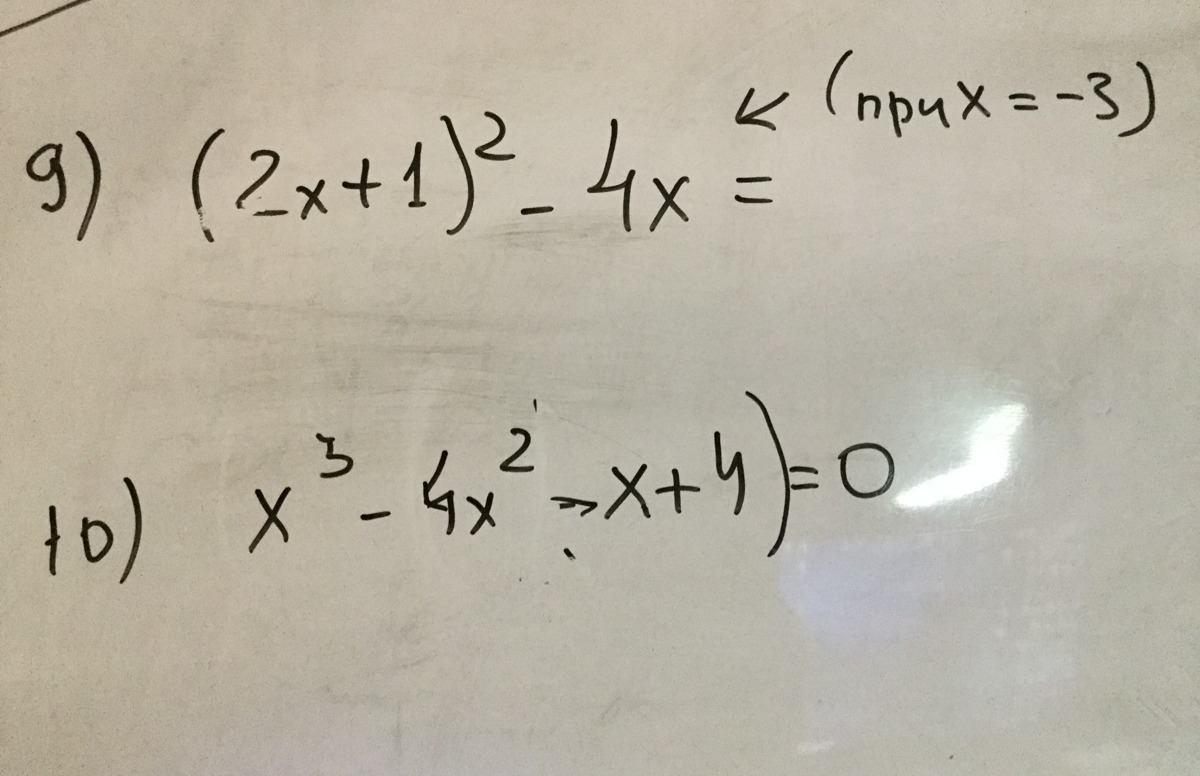 9) (2x+1)² - 4x = ↙ (при x = -3)
10) x³ - 4x² - x + 4) = 0